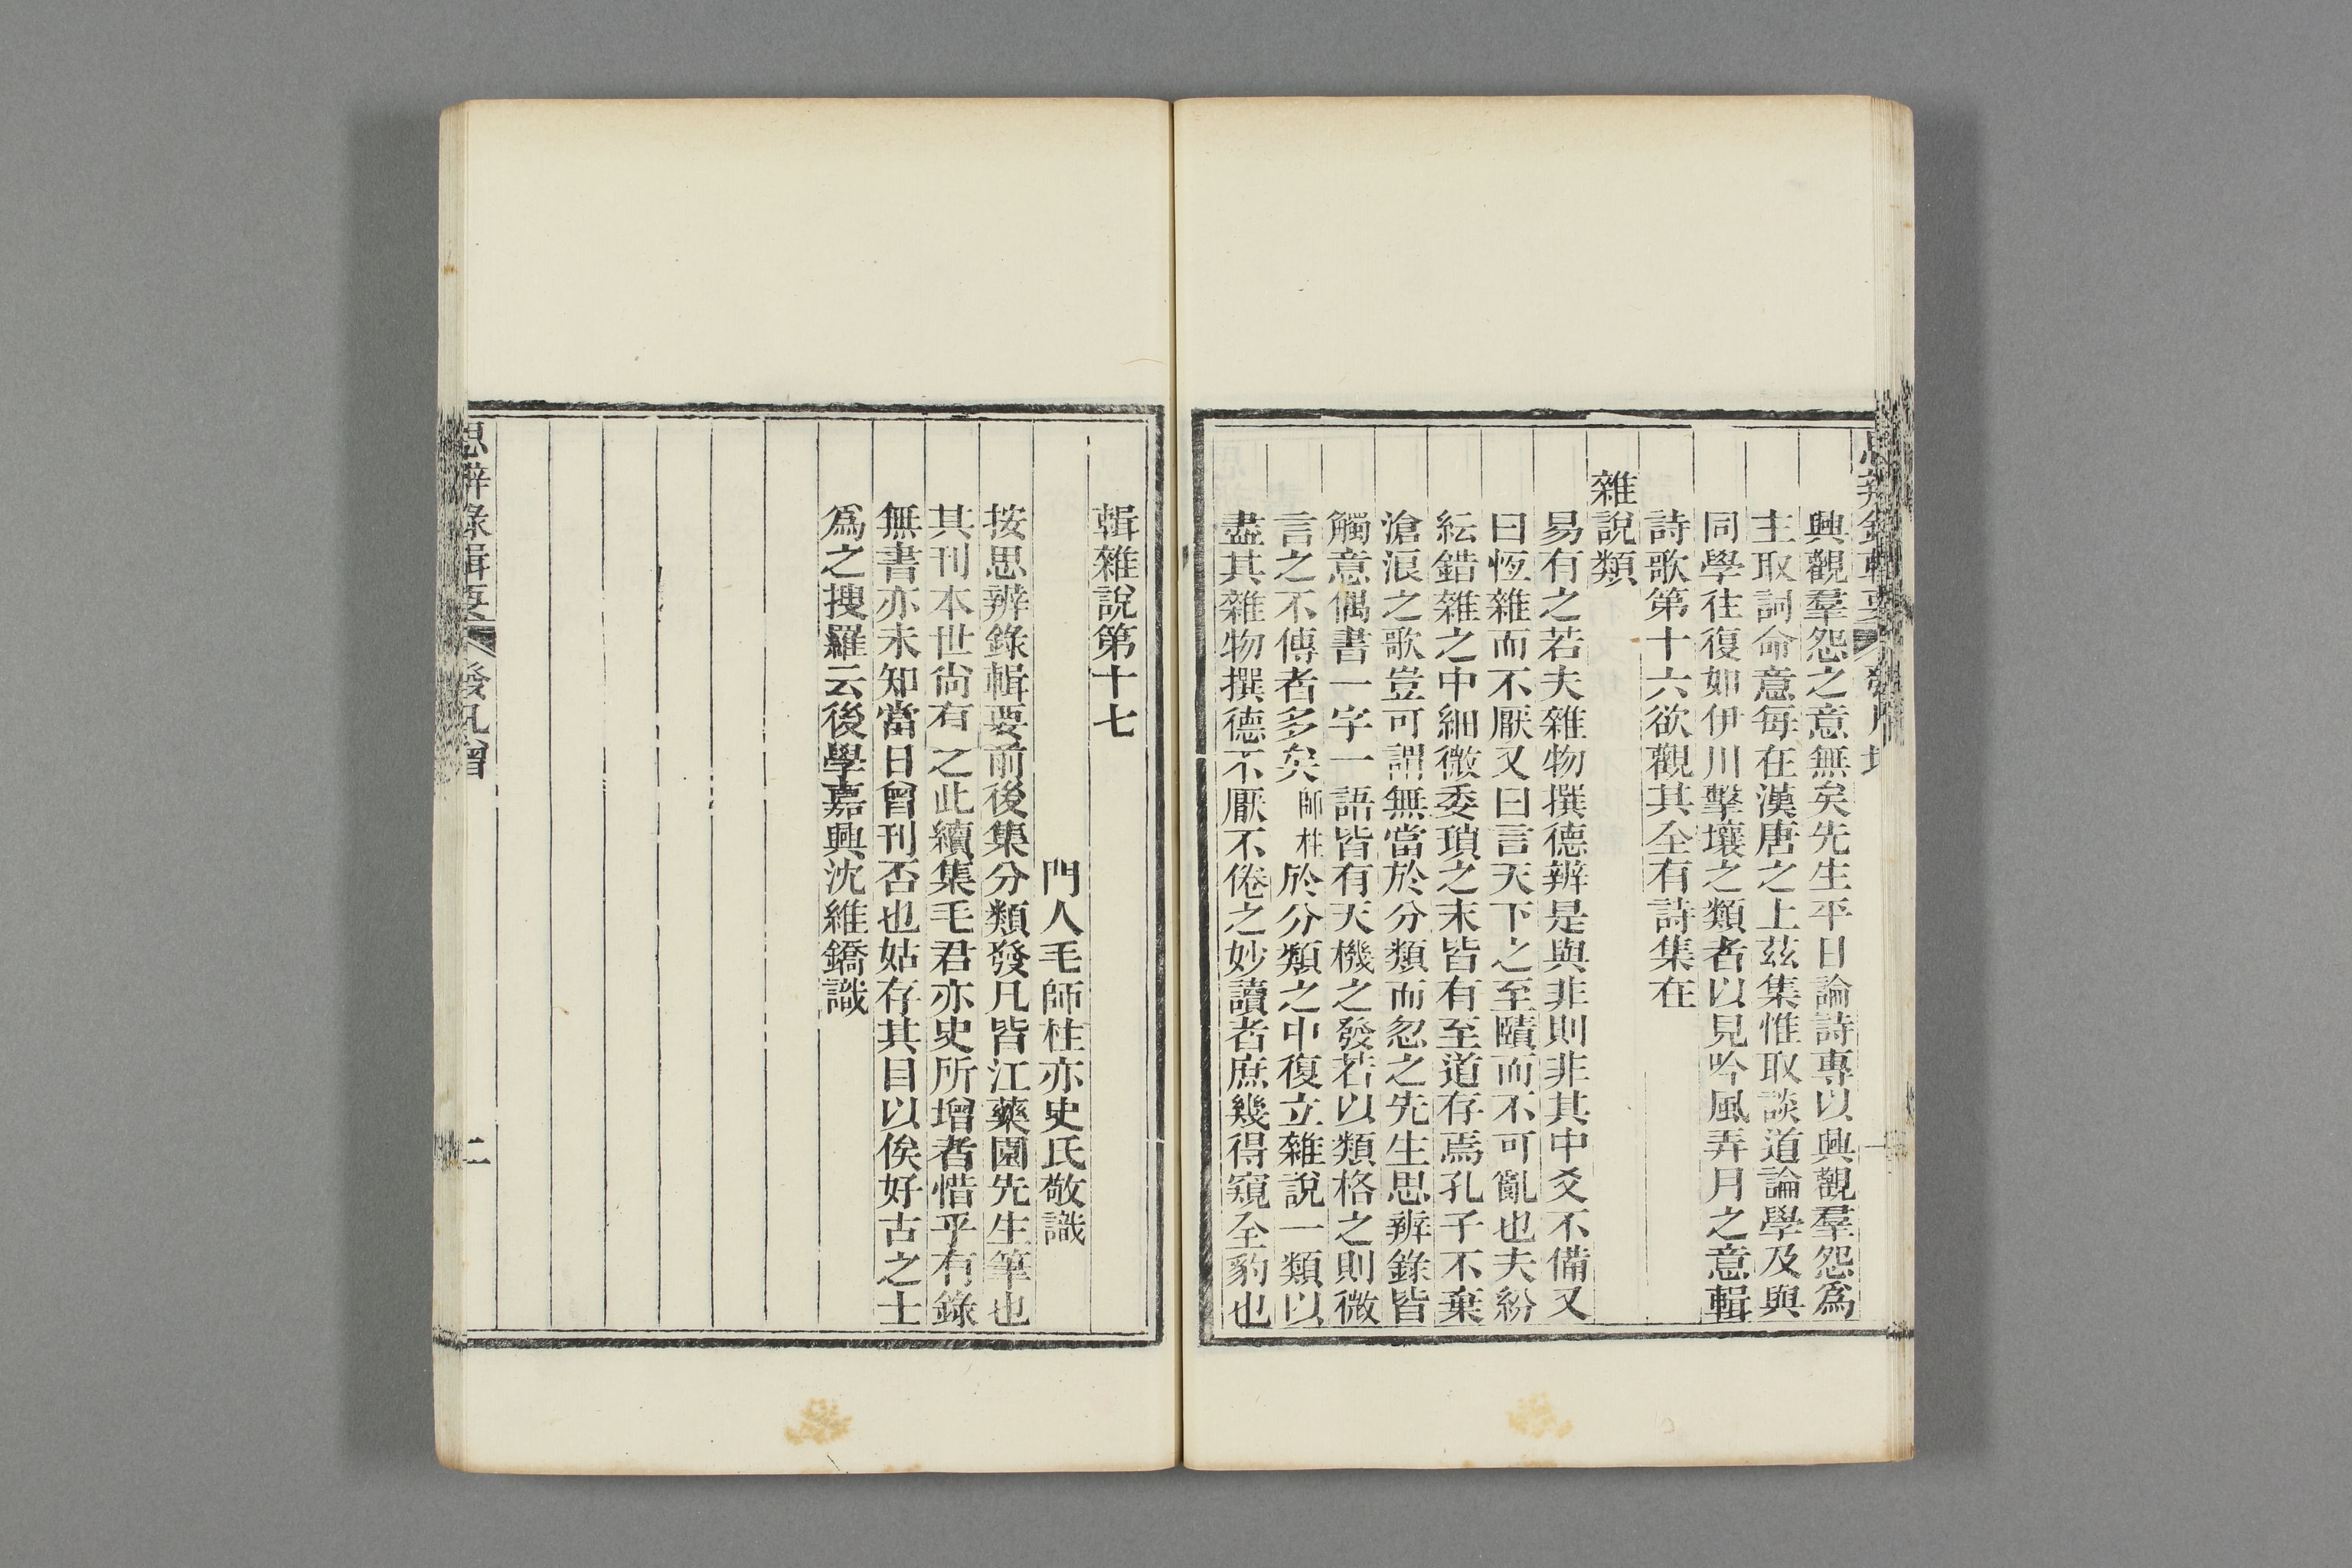 興觀羣怨之意無矣先生平日論詩專以興觀羣怨爲
主取詞命意每在漢唐之上茲集惟取談道論學及與
同學往復如伊川擊壤之類者以見吟風弄月之意輯
詩歌第十六欲觀其全有詩集在
雜說類
易有之若夫雜物撰德辨是與非則非其中爻不備又
曰恆雜而不厭又曰言天下之至賾而不可亂也夫紛
紜錯雜之中細微委瑣之末皆有至道存焉孔子不棄
滄浪之歌豈可謂無當於分類而忽之先生思辨錄皆
觸意偶書一字一語皆有天機之發若以類格之則微
言之不傳者多矣師桂於分類之中復立雜說一類以
盡其雜物撰德不厭不倦之妙讀者庶幾得窺全豹也
輯雜說第十七
門人毛師柱亦史氏敬識
按思辨錄輯要前後集分類發凡皆江藥園先生筆也
其刊本世尙有之此續集毛君亦史所增者惜乎有錄
無書亦未知當日曾刊否也姑存其目以俟好古之士
爲之搜羅云後學嘉興沈維鐈識
思辨錄輯要 發凡增 二